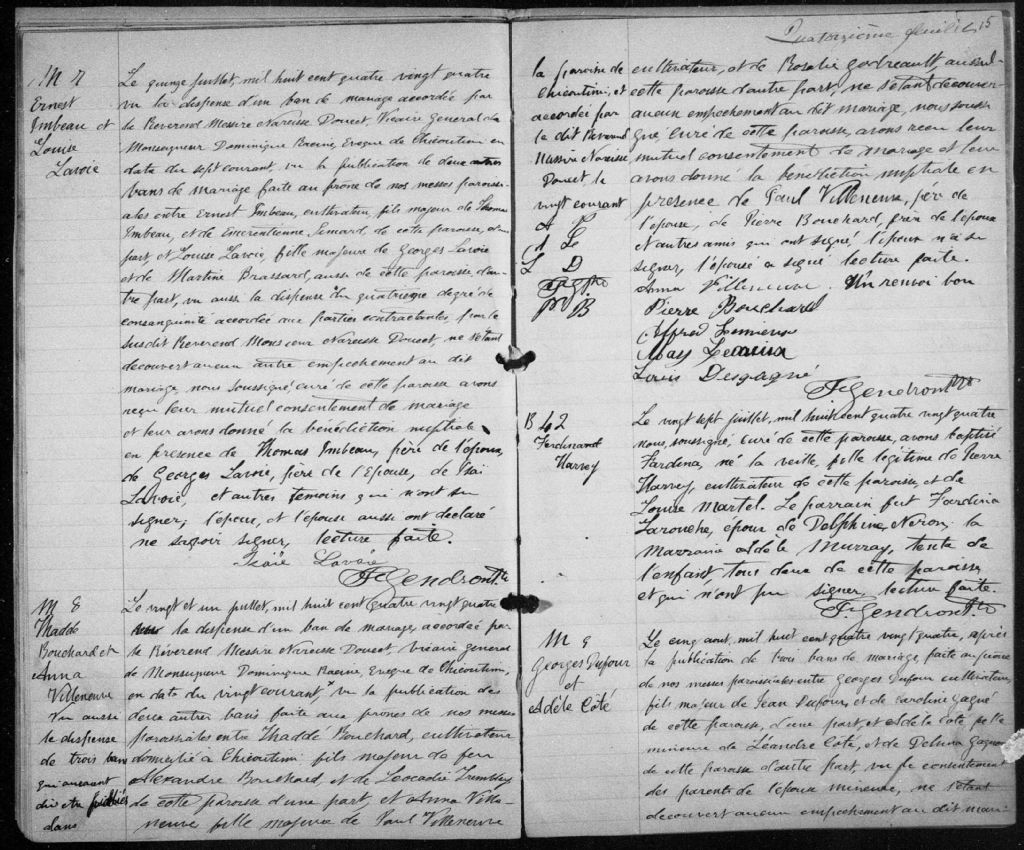 M 7
Ernest
Imbeau et
Louise
Lavoie
Le quinze juillet, mil huit cent quatre vingt quatre
vu la dispense d'un ban de mariage accordée par
le Reverend Messire Narcisse Doucet, Vicaire General de
Monseigneur Dominique Racine, Eveque de Chicoutimi en
date du sept courant, vu la publication de deux autres
bans de mariage faite au prône de nos messes paroissi-
ales entre Ernest Imbeau, cultivateur, fils majeur de Thomas
Imbeau, et de Emerentienne Simard, de cette paroisse, d'une
part, et Louise Lavoie, fille majeure de Georges Lavoie
et de Martine Brassard, aussi de cette paroisse, d'au-
tre part, vu aussi la dispense du quatrieme degré de
consanguinité accordée aux parties contractantes, par le
susdit Reverend Monsieur Narcisse Doucet, ne s'etant
decouvert aucun autre empêchement au dit
mariage, nous, soussigné, curé de cette paroisse avons
reçu leur mutuel consentement de mariage
et leur avons donné la bénédiction nuptiale
en presence de Thomas Imbeau, père de l'époux,
de Georges Lavoie, père de l'Epouse, de Isaï
Lavoie, et autres temoins qui n'ont su
signer; l'epoux, et l'epouse aussi ont declaré
ne savoir signer, lecture faite.
Isaïe Lavoie
F. Gendron Ptre
M 8
Thaddé
Bouchard et
Anna
Villeneuve
Vu aussi
la dispense
de trois bans
qui auraient
dû etre publiés
dans
Le vingt et un juillet, mil huit cent quatre vingt quatre
la dispense d'un ban de mariage, accordée par
le Révérend Messire Narcisse Doucet, vicaire general
de Monsigneur Dominique Racine, Eveque de Chicoutimi,
en date du vingt courant, x vu la publication des
deux autres bans faite aux prones de nos messes
paroissiales entre Thaddé Bouchard, cultivateur
domicilié a Chicoutimi fils majeur de feu
Alexandre Bouchard, et de Leocadie Tremblay
de cette paroisse d'une part, et Anna Ville-
neuve fille majeure de Paul Villeneuve
Quatorzième feuillet 15
la paroisse de
Chicoutimi, et
accordée par
le dit Reverend
Messire Narcisse
Doucet, le
vingt courant
A L
L D
P B
cultivateur, et de Rosalie Godreault, aussi de
cette paroisse d'autre part, ne s'etant decouvert
aucun empechement au dit mariage, nous, soussi-
gné, curé de cette paroisse, avons recu leur
mutuel consentement de mariage et leur
avons donné la benediction nuptiale en
presence de Paul Villeneuve, père de
l'épouse, de Pierre Bouchard, frère de l'époux
et autres amis qui ont signé, l'époux n'a su
signer, l'épouse a signé lecture faite.
Anna Villeneuve. Un renvoi bon
Pierre Bouchard
Alfred Lemieux
Mary Lemieux
Louis Desgagné
F. Gendron Ptre
B 42
Ferdinand
Harvey
Le vingt sept juillet, mil huit cent quatre vingt quatre
nous, soussigné, curé de cette paroisse, avons baptisé
Fardina, né la veille, fille legitime de Pierre
Harvey, cultivateur de cette paroisse, et de
Louise Martel. Le parrain fut Fardina
Larouche, époux de Delphine Neron; la
marraine Adèle Murray, tante de
l'enfant, tous deux de cette paroisse
et qui n'ont pu signer, lecture faite.
F. Gendron Ptre.
M 9
Georges Dufour
et
Adéle Côté
Le cinq aout, mil huit cent quatre vingt quatre, après
la publication de trois bans de mariage, faite au prone
de nos messes paroissiales entre Georges Dufour cultivateur,
fils majeur de Jean Dufour, et de Caroline Gagné
de cette paroisse, d'une part, et Adele Coté fille
mineure de Léandre Côté, et de Delima Gagné
de cette paroisse d'autre part, vu le consentement
des parents de l'epoux mineure, ne s'etant
decouvert aucun empechement au dit mari-